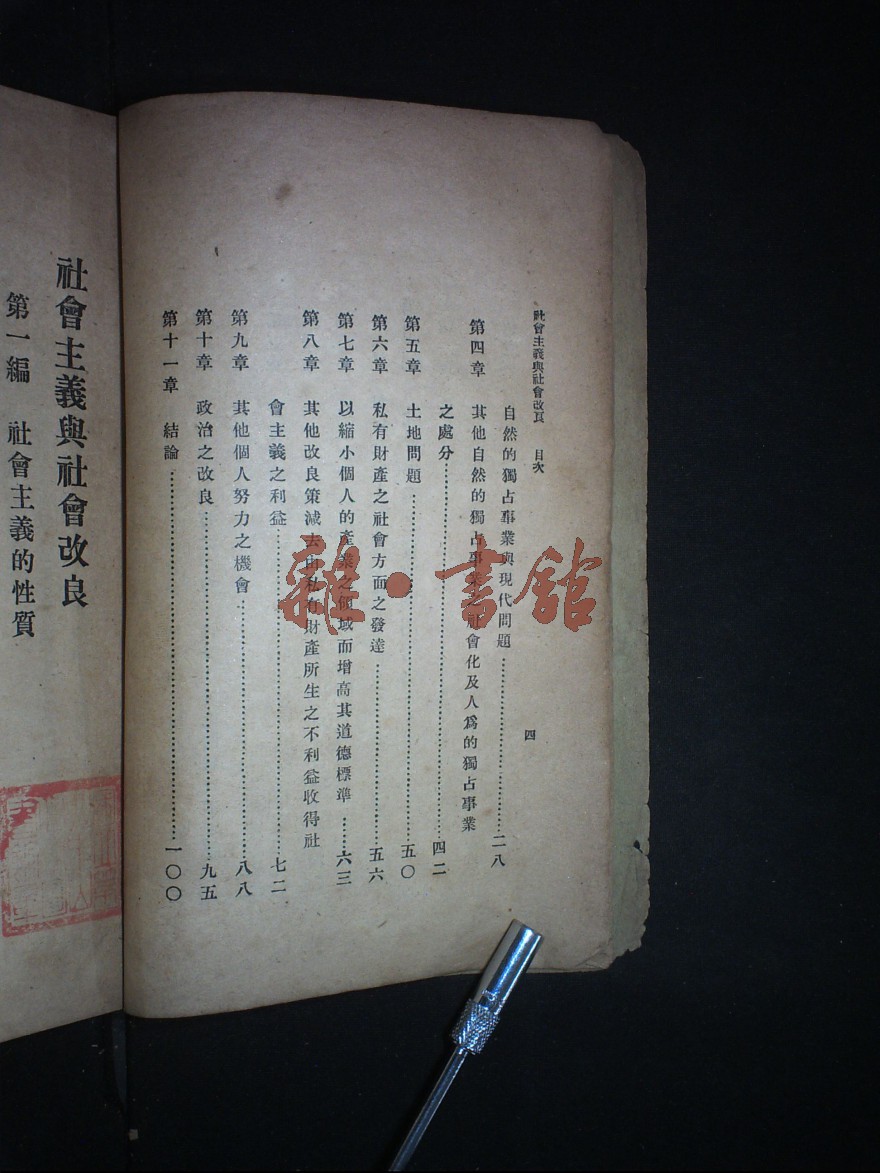 社會主義與社會改良　目次
四
自然的獨占事業與現代問題……二八
第四章　其他自然的獨占事業之社會化及人爲的獨占事業
之處分……四二
第五章　土地問題……五〇
第六章　私有財產之社會方面之發達……五六
第七章　以縮小個人的產業之領域而增高其道德標準……六三
第八章　其他改良策減去由私有財產所生之不利益收得社
會主義之利益……七二
第九章　其他個人努力之機會……八八
第十章　政治之改良……九五
第十一章　結論……一〇〇
社會主義與社會改良
第一編　社會主義的性質
雜·書館